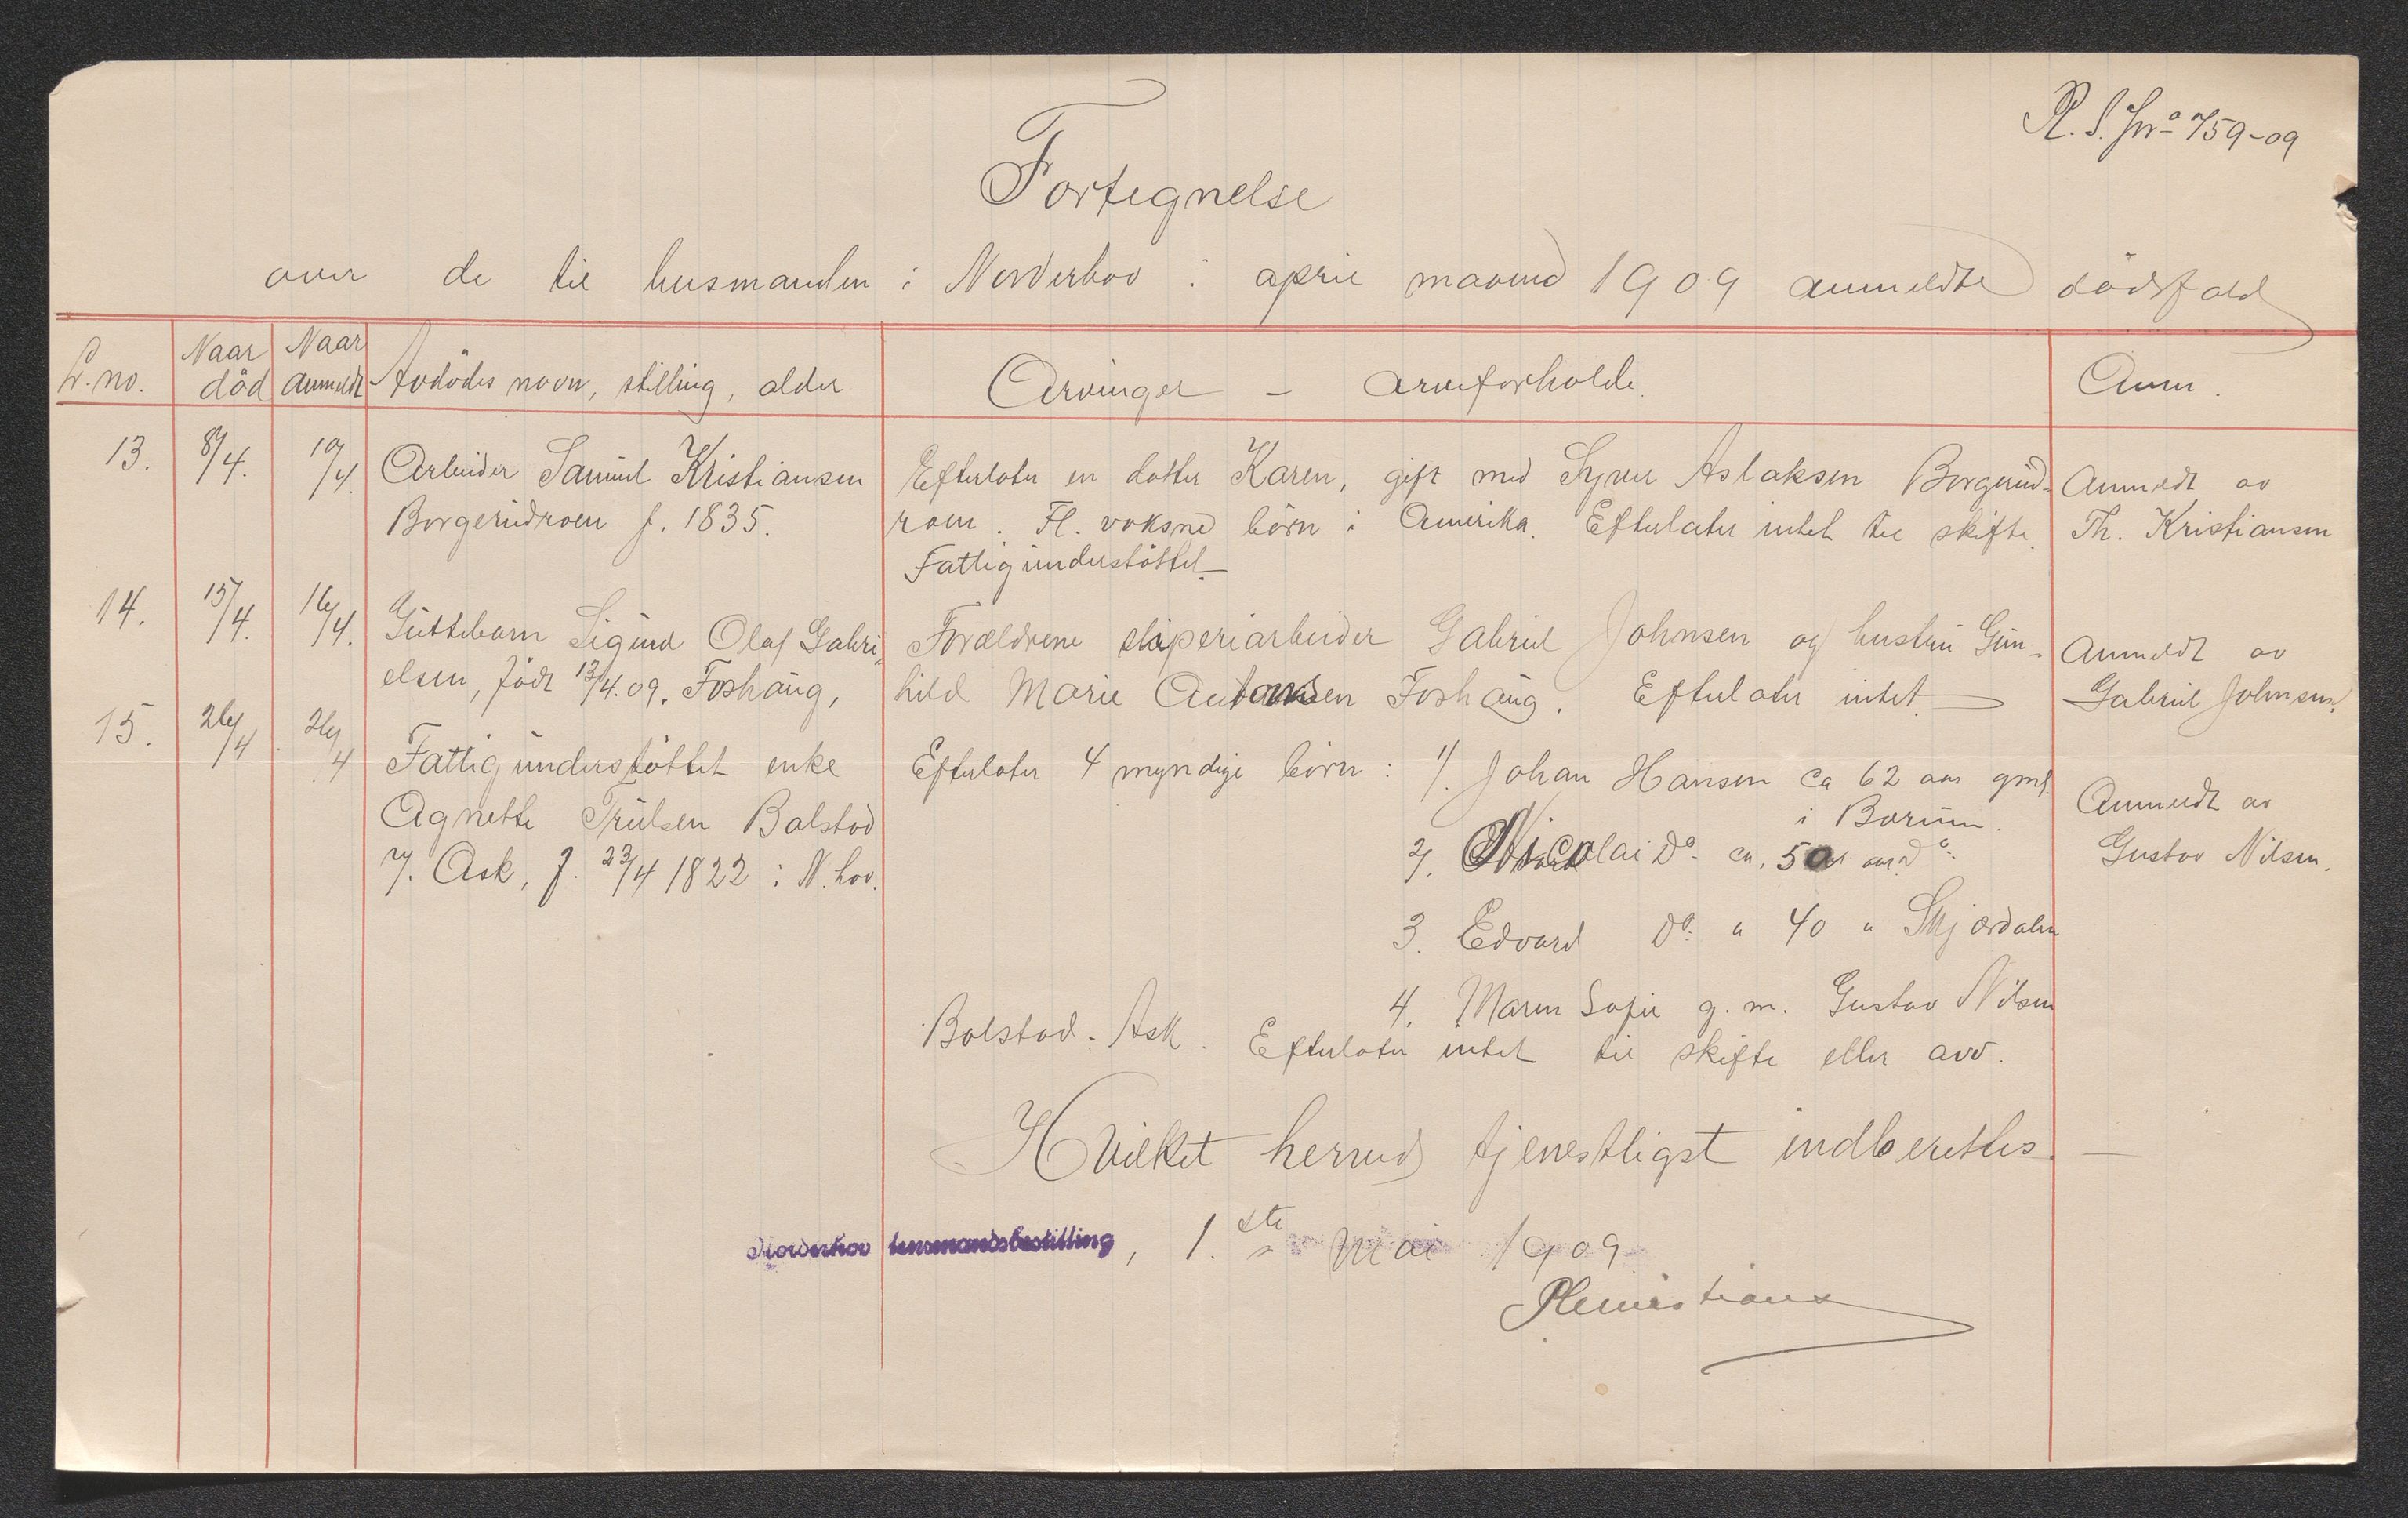 R. S. Jnº 759-09
Fortegnelse
over de til lensmanden i Norderhov i april maaned 1909 anmeldte dödsfald
L. no. Naar död Naar anmeldt Avdödes navn, stilling, alder Arvinger - arveforholde. Anm.
13. 8/4. 10/4. Arbeider Samuel Kristiansen Efterlater en datter Karen, gift med Syver Aslaksen Borgerud- Anmeldt av
Borgerudroen f. 1835. roen. Fl. voksne börn i Amerika. Efterlater intet til skifte. Th. Kristiansen
Fattigunderstöttet
14. 15/4. 16/4. Guttebarn Sigurd Olaf Gabri- Forældrene sliperiarbeider Gabriel Johnsen og hustru Gun- Anmeldt av
elsen, födt 13/4.09. Foshaug, hild Marie Antonsen Foshaug. Efterlater intet. Gabriel Johnsen.
15. 26/4 26/4 Fattigunderstöttet enke Efterlater 4 myndige börn: 1/. Johan Hansen ca 62 aar gml.
i Bærum. Anmeldt av
Agnette Trulsen Bolstad 2/. Nicolai Dº ca. 50 aar Dº Gustav Nilsen.
/. Ask, f. 23/4 1822 i N.hov.
3. Edvard Dº " 40 " Skjærdalen
4. Maren Sofie g. m. Gustav Nilsen
Bolstad. Ask. Efterlater intet til skifte eller arv.
Hvilket herved tjenestligst indberettes.
Norderhov lensmandsbestilling, 1.ste mai 1909